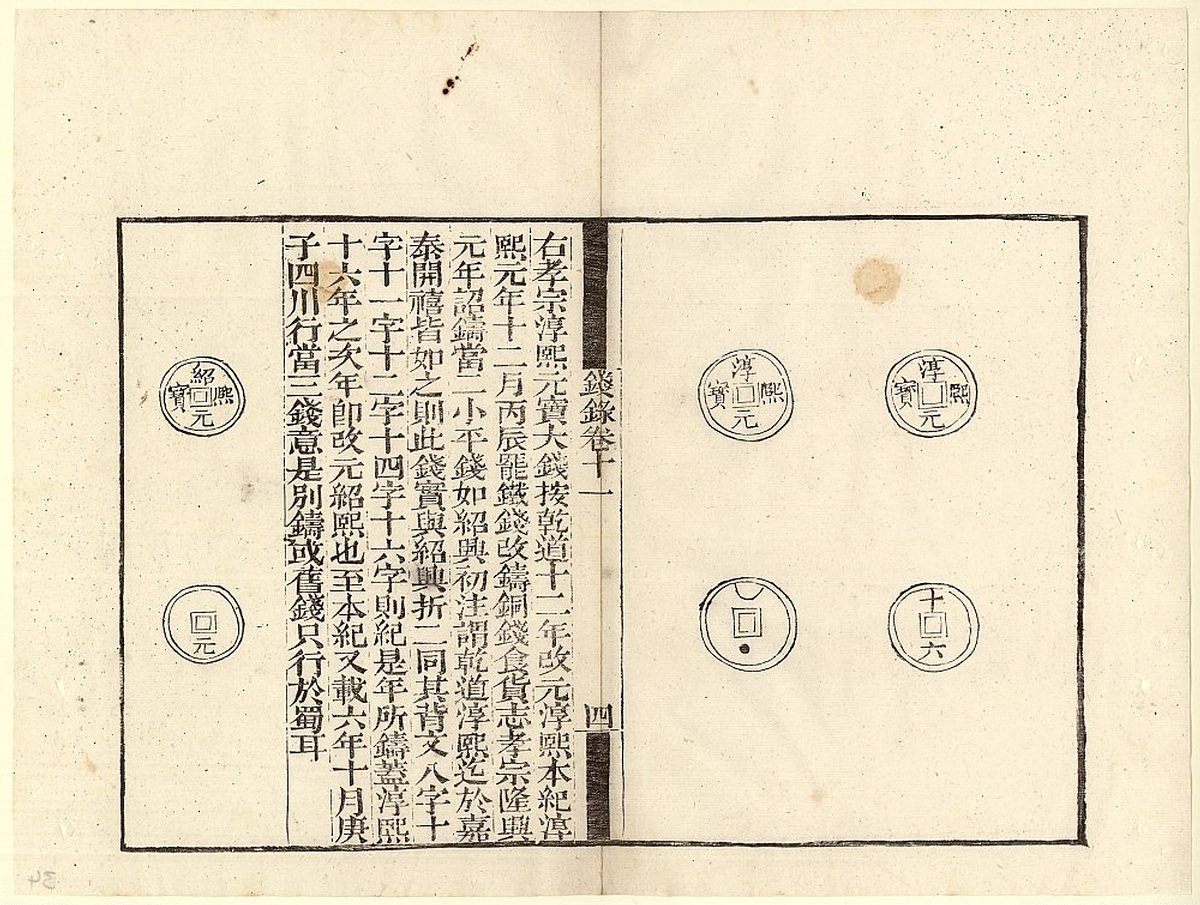 淳熙元寶
十六
淳熙元寶
錢錄卷十一
四
右孝宗淳熙元寶大錢按乾道十二年改元淳熙本紀淳
熙元年十二月丙辰罷鐵錢改鑄銅錢食貨志孝宗隆興
元年詔鑄當二小平錢如紹興初注謂乾道淳熙迄於嘉
泰開禧皆如之則此錢實與紹興折二同其背文八字十
字十一字十二字十四字十六字則紀是年所鑄蓋淳熙
十六年之次年卽改元紹熙也至本紀又載六年十月庚
子四川行當三錢意是別鑄或舊錢只行於蜀耳
紹熙元寶
元
34